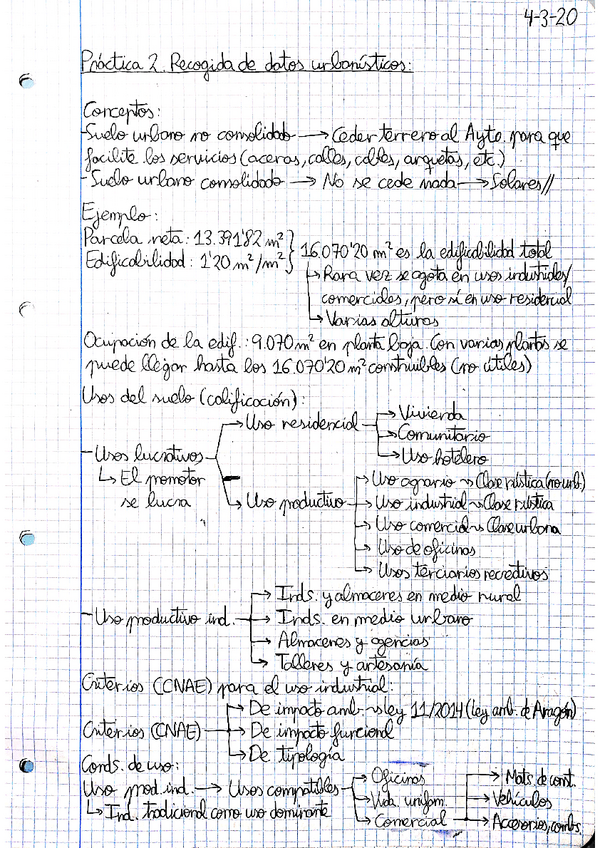 4-3-20
Práctica 2. Recogida de datos urbanísticos:
Conceptos:
-Suelo urbano no consolidado → Ceder terreno al Ayto. para que
facilite los servicios (aceras, calles, cables, arquetas, etc.)
-Suelo urbano consolidado → No se cede nada → Solares//
Ejemplo:
Parcela neta: 13.391'82 m²
Edificabilidad: 1'20 m²/m²
16.070'20 m² es la edificabilidad total
↳ Rara vez se agota en usos industriales/
comerciales, pero sí en uso residencial
↳ Varias alturas
Ocupación de la edif.: 9.070 m² en planta baja. Con varias plantas se
puede llegar hasta los 16.070'20 m² construibles (no útiles)
Usos del suelo (calificación):
- Usos lucrativos
↳ El promotor
se lucra
→ Uso residencial
→ Vivienda
→ Comunitario
→ Uso hotelero
→ Uso productivo
→ Uso agrario ⇝ Clase rústica (no urb.)
→ Uso industrial ⇝ Clase rústica
→ Uso comercial ⇝ Clase urbana
→ Uso de oficinas
→ Usos terciarios recreativos
- Uso productivo ind.
→ Inds. y almacenes en medio rural
→ Inds. en medio urbano
→ Almacenes y agencias
→ Talleres y artesanía
Criterios (CNAE) para el uso industrial:
Criterios (CNAE)
→ De impacto amb. ⇝ Ley 11/2014 (Ley amb. de Aragón)
→ De impacto funcional
→ De tipología
Conds. de uso:
Uso prod. ind. → Usos compatibles
↳ Ind. tradicional como uso dominante
→ Oficinas
→ Vida. unifam.
→ Comercial
→ Mats. de const.
→ Vehículos
→ Accesorios, combs.